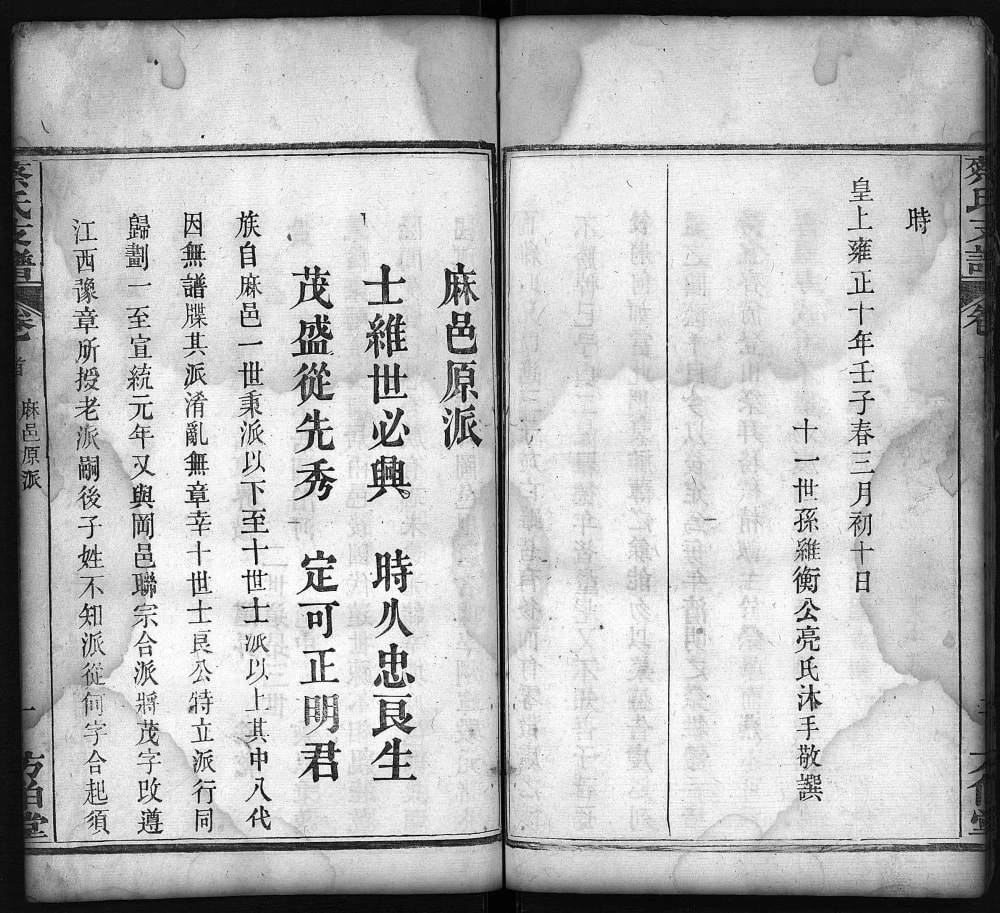 時
皇上雍正十年壬子春三月初十日
十一世孫維衡公亮氏沐手敬譔
麻邑原派
士維世必興 時乆忠良生
茂盛從先秀 定可正明君
族自麻邑一世秉派以下至十世士派以上其中八代
因無譜牒其派淆亂無章幸十世士良公特立派行同
歸劃一至宣統元年又與岡邑聯宗合派將茂字改遵
江西豫章所授老派嗣後子姓不知派從何字合起須
蔡氏支譜
卷首
麻邑原派
一